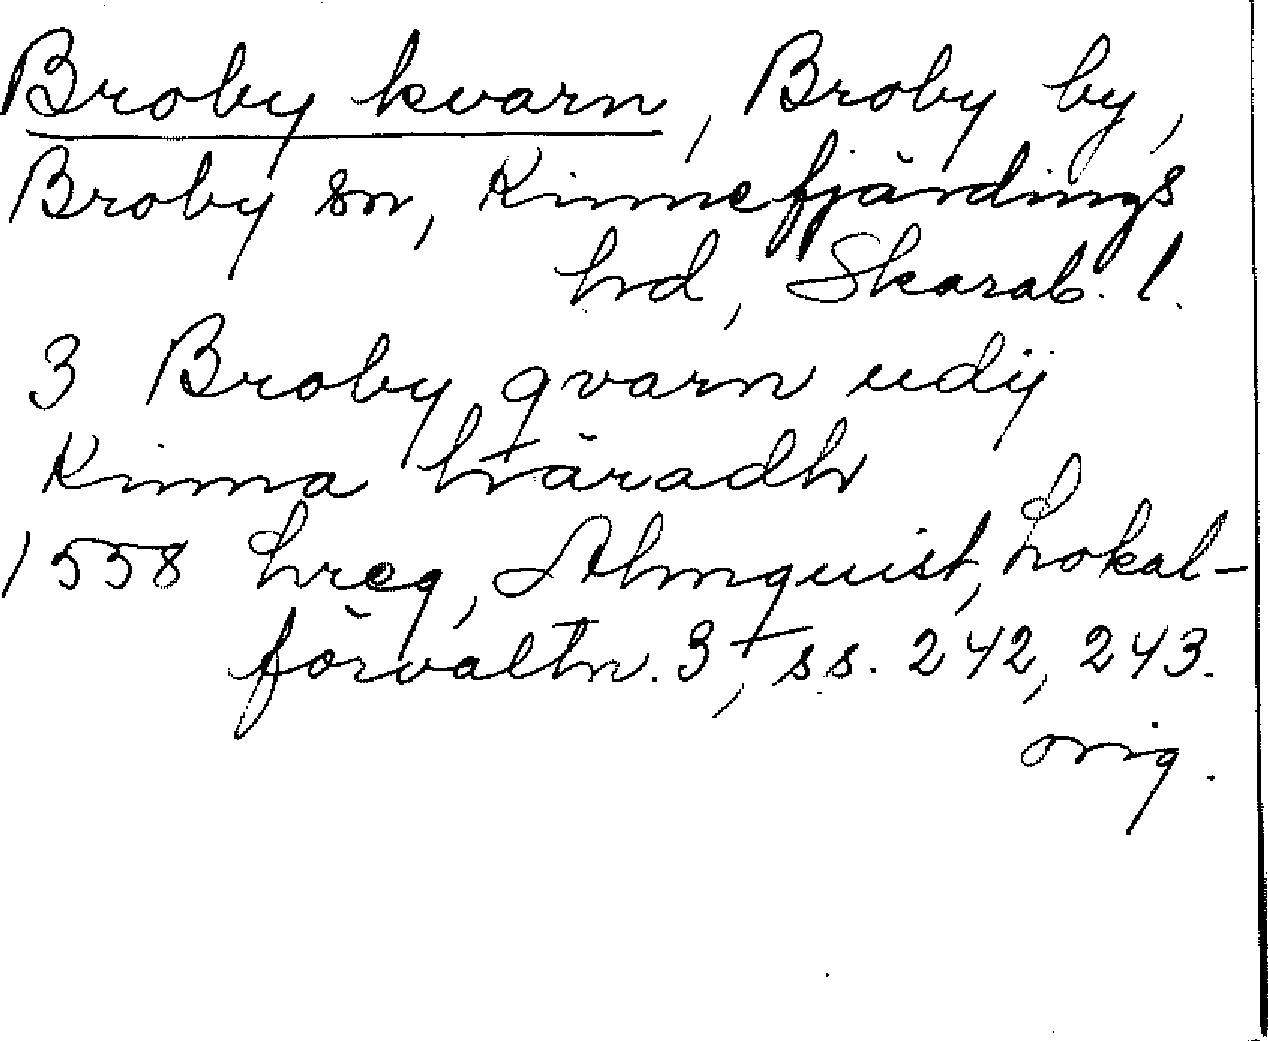 Broby kvarn, Broby by,
Broby sn, Kinnefjärdings
hd, Skarab. l.
3 Broby qvarn udij
Kinna häradh
1558 hreg, Almquist, Lokal-
förvaltn. 3, ss. 242, 243.
orig.